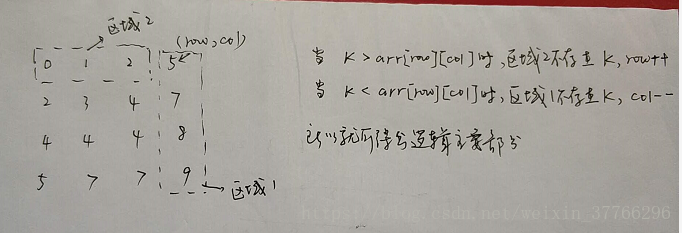 区域2
(row,col)
0 1 2 5
2 3 4 7
4 4 4 8
5 7 7 9
区域1
当 K > arr[row][col] 时,区域2不存在 K, row++
当 K < arr[row][col] 时,区域1不存在 K, col--
所以就可得出逻辑主要部分
https://blog.csdn.net/weixin_37766296